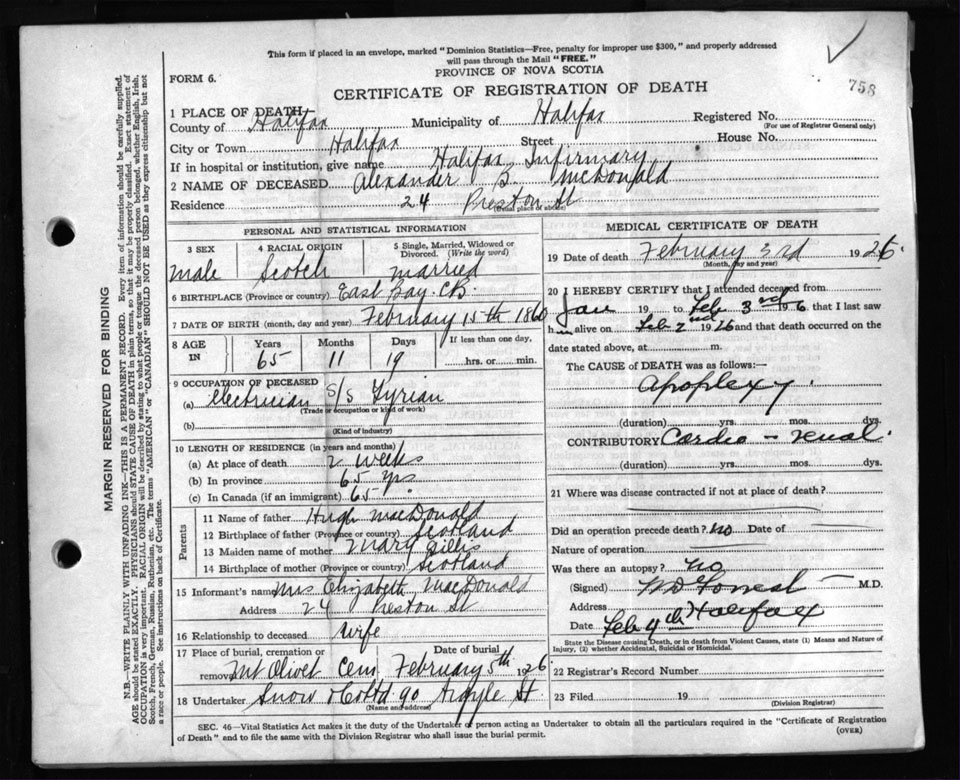 This form if placed in an envelope, marked "Dominion Statistics—Free, penalty for improper use $300," and properly addressed
will pass through the Mail "FREE."
FORM 6.
PROVINCE OF NOVA SCOTIA
758
CERTIFICATE OF REGISTRATION OF DEATH
1 PLACE OF DEATH
County of Halifax Municipality of Halifax Registered No.
(For use of Registrar General only)
City or Town Halifax Street House No.
If in hospital or institution, give name Halifax Infirmary
2 NAME OF DECEASED Alexander B. McDonald
Residence 24 Preston St
(Usual place of abode)
PERSONAL AND STATISTICAL INFORMATION
3 SEX 4 RACIAL ORIGIN 5 Single, Married, Widowed or
Divorced. (Write the word)
male Scotch married
6 BIRTHPLACE (Province or country) East Bay. CB
7 DATE OF BIRTH (month, day and year) February 15th 1860
8 AGE IN Years Months Days If less than one day,
65 11 19 hrs. or min.
9 OCCUPATION OF DECEASED
(a) electrician S/S Tyrian
(Trade or occupation or kind of work)
(b)
(Kind of industry)
10 LENGTH OF RESIDENCE (in years and months)
(a) At place of death 2 weeks
(b) In province 65 yrs.
(c) In Canada (if an immigrant) 65
Parents
11 Name of father Hugh MacDonald
12 Birthplace of father (Province or country) Scotland
13 Maiden name of mother Mary Gillis
14 Birthplace of mother (Province or country) Scotland
15 Informant's name Mrs Elizabeth MacDonald
Address 24 Preston St
16 Relationship to deceased wife
17 Place of burial, cremation or Date of burial
removal Mt Olivet Cem February 5th 1926
18 Undertaker Snow & Co Ltd. 90 Argyle St
(Name and address)
MEDICAL CERTIFICATE OF DEATH
19 Date of death February 3rd 1926.
(Month, day and year)
20 I HEREBY CERTIFY that I attended deceased from
Jan 19 to Feb 3rd 1926 that I last saw
h im alive on Feb 2nd 1926 and that death occurred on the
date stated above, at m.
The CAUSE of DEATH was as follows:—
Apoplexy.
(duration) yrs. mos. dys.
CONTRIBUTORY Cardio - renal.
(duration) yrs. mos. dys.
21 Where was disease contracted if not at place of death?
Did an operation precede death? no Date of
Nature of operation
Was there an autopsy? no
(Signed) WD Forrest M.D.
Address Halifax
Date Feb 4th
State the Disease causing Death, or in death from Violent Causes, state (1) Means and Nature of
Injury, (2) whether Accidental, Suicidal or Homicidal.
22 Registrar's Record Number
23 Filed 19
(Division Registrar)
SEC. 46—Vital Statistics Act makes it the duty of the Undertaker or person acting as Undertaker to obtain all the particulars required in the "Certificate of Registration
of Death" and to file the same with the Division Registrar who shall issue the burial permit. (OVER)
MARGIN RESERVED FOR BINDING
N.B.—WRITE PLAINLY WITH UNFADING INK—THIS IS A PERMANENT RECORD. Every item of information should be carefully supplied.
AGE should be stated EXACTLY. PHYSICIANS should STATE CAUSE OF DEATH in plain terms, so that it may be properly classified. Exact statement of
OCCUPATION is very important. RACIAL ORIGIN will be described by stating to what people or tongue the deceased person belonged, whether English, Irish,
Scotch, French, German, Russian, Ruthenian, etc. The terms "AMERICAN" or "CANADIAN" SHOULD NOT BE USED as they express citizenship but not
a race or people. See instructions on back of Certificate.